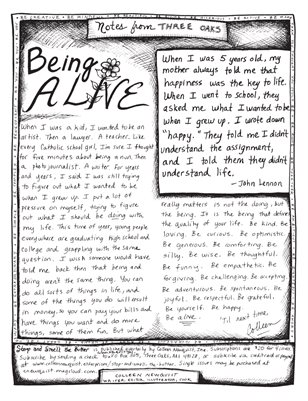 BE CREATIVE • BE
Notes from THREE OAKS
Being
ALIVE
When I was 5 years old, my
mother always told me that
happiness was the key to life.
When I went to school, they
asked me what I wanted to be
when I grew up. I wrote down
"happy." They told me I didn't
understand the assignment,
and I told them they didn't
understand life.
- John Lennon
When I was a kid, I wanted to be an
artist. Then a lawyer. A teacher. Like
every Catholic school girl, I'm sure I thought
for five minutes about being a nun. Then
a photojournalist. A writer. For years
and years, I said I was still trying
to figure out what I wanted to be
when I grew up. I put a lot of
pressure on myself, trying to figure
out what I should be doing with
my life. This time of year, young people
everywhere are graduating high school and
college and grappling with the same
question. I wish someone would have
told me back then that being and
doing aren't the same thing. You can
do all sorts of things in life, and
some of the things you do will result
in money, so you can pay your bills and
have things you want and do more
things, some of them fun. But what
really matters is not the doing, but
the being. It is the being that defines
the quality of your life. Be kind. Be
loving. Be curious. Be optimistic.
Be generous. Be comforting. Be
silly. Be wise. Be thoughtful.
Be funny. Be empathetic. Be
forgiving. Be challenging. Be accepting.
Be adventurous. Be spontaneous. Be
joyful. Be respectful. Be grateful.
Be yourself. Be happy.
Be alive.
'til next time,
Colleen
Stop and Smell the Butter is published quarterly by Colleen Newquist, Inc. Subscriptions are $20 for 4 issues.
Subscribe by sending a check to
Three Oaks, MI 49128, or subscribe via credit card or paypal
at
Single issues may be purchased at
newquist.magcloud.com.
COLLEEN NEWQUIST
WRITER, EDITOR, ILLUSTRATOR, COOK